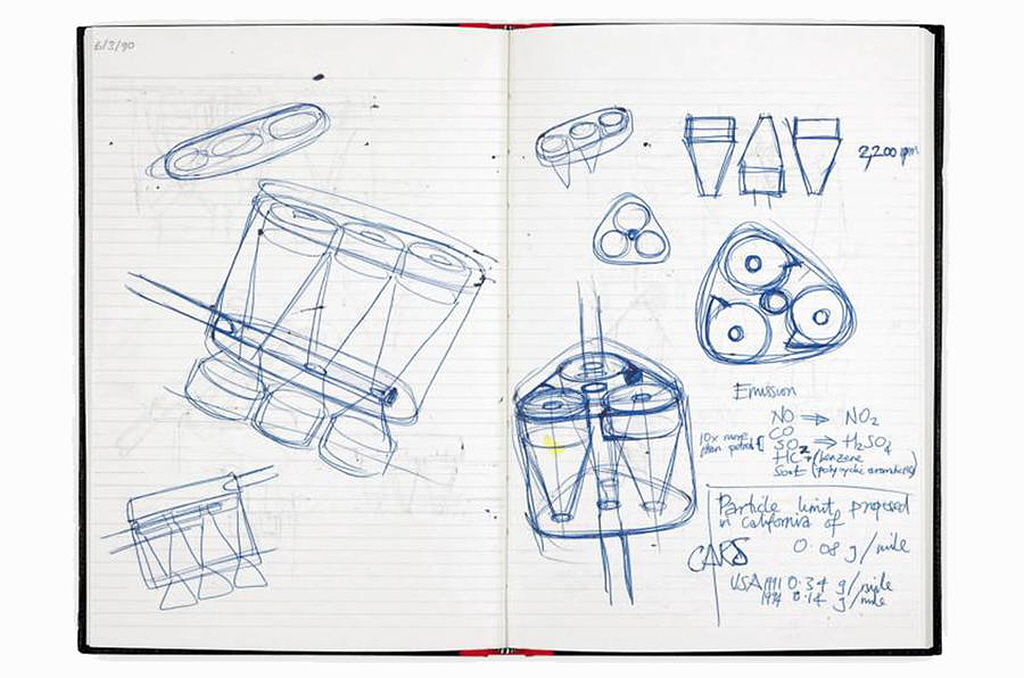 6/3/90
2,200 rpm
Emission
NO ⇒ NO2
CO
10x more
than petrol {
SO2 ⇒ H2SO4
HC → (benzene
Soot (polycyclic aromatics)
Particle limit proposed
in California of
CARS 0.08 g/mile
USA 1991 0.34 g/mile
1994 0.14 g/mile